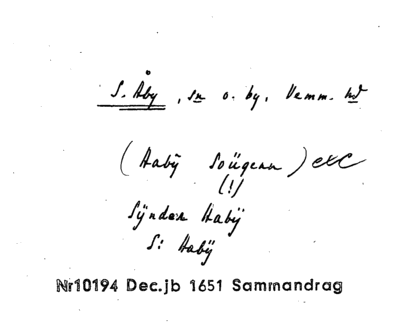 S. Åby, sn o. by, Vemm. hd
(Habÿ Soügenn) exc
(!)
Sÿnder Habÿ
S: Habÿ
Nr10194 Dec.jb 1651 Sammandrag